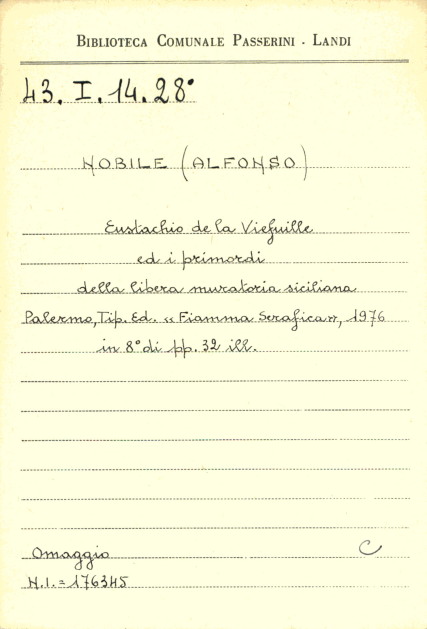 BIBLIOTECA COMUNALE PASSERINI - LANDI
43. I. 14. 28°
NOBILE (ALFONSO)
Eustachio de la Viefuille
ed i primordi
della libera muratoria siciliana
Palermo, Tip. Ed. « Fiamma Serafica », 1976
in 8° di pp. 32 ill.
Omaggio C
N.I. = 176345